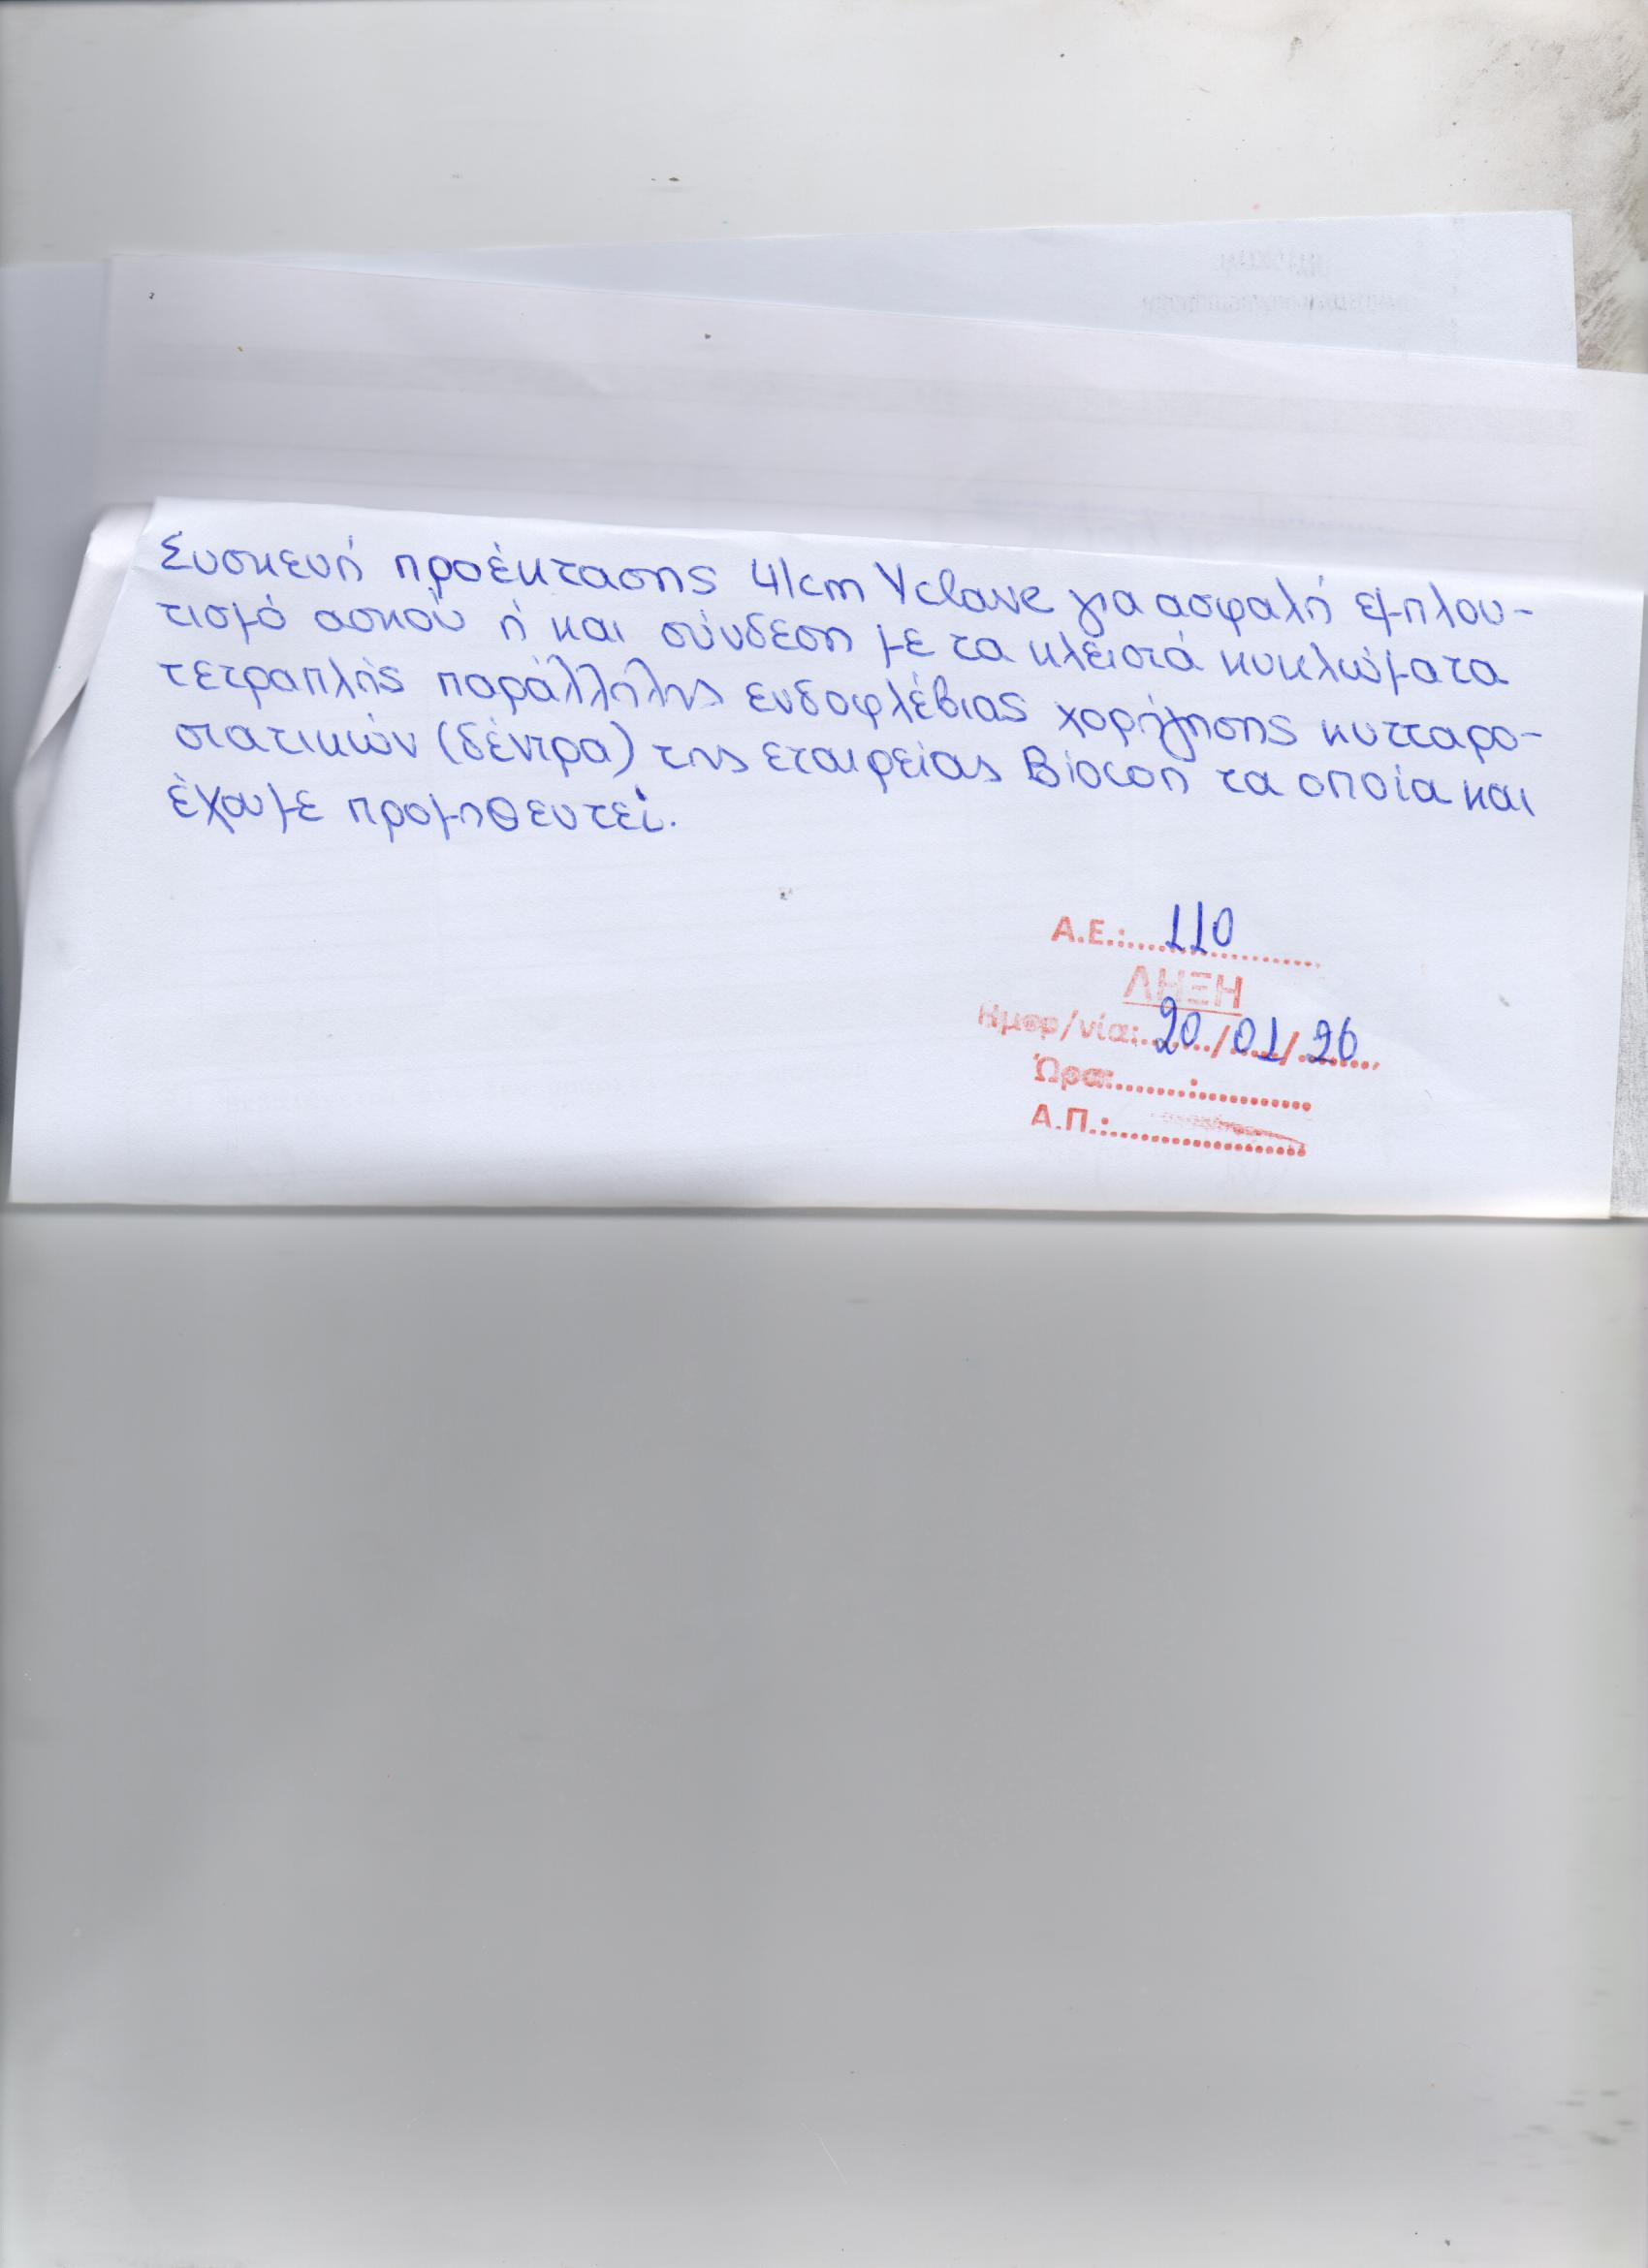 Συσκευή προέκτασης 41cm Yclave για ασφαλή εμπλου-
τισμό ασκού ή και σύνδεση με τα κλειστά κυκλώματα
τετραπλής παράλληλης ενδοφλέβιας χορήγησης κυτταρο-
στατικών (δέντρα) της εταιρείας Βiocon τα οποία και
έχουμε προμηθευτεί.
Α.Ε.:.....110..............
ΛΗΞΗ
Ημερ/νία:..20../01/.26...
Ώρα:........:............
Α.Π.:........................